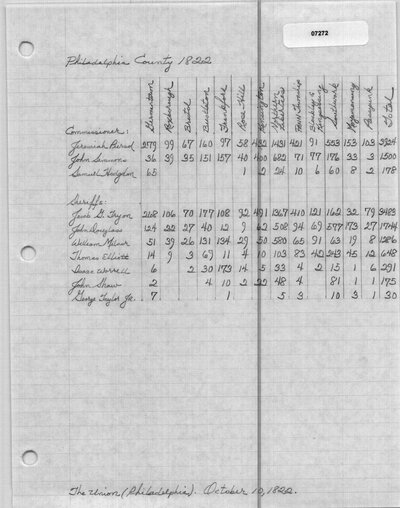 07272
Philadelphia County 1822
Germantown Roxborough Bristol Bustleton Frankford Rose Hill Kensington Northern Liberties Penn Township Blockley & Kingsessing Southwark Moyamensing Passyunk Total
Commissioner:
Jeremiah Peirsol 279 99 67 160 97 58 432 1431 421 91 553 153 103 3924
John Simmons 36 39 35 151 157 40 400 682 71 77 176 33 3 1500
Samuel Hodgdon 65 1 2 24 10 6 60 8 2 178
Sheriff:
Jacob G. Tryon 268 106 70 177 108 92 491 1367 410 121 162 32 79 3483
John Douglass 124 22 27 40 12 9 62 508 94 69 577 173 27 1744
William Milnor 51 39 26 131 134 29 50 580 65 91 63 19 8 1286
Thomas Elliott 14 9 3 69 11 4 10 103 83 42 243 45 12 648
Isaac Worrell 6 2 30 173 14 5 33 4 2 15 1 6 291
John Shaw 2 4 10 2 22 48 4 81 1 1 175
George Taylor Jr. 7 1 5 3 10 3 1 30
The Union (Philadelphia). October 10, 1822.